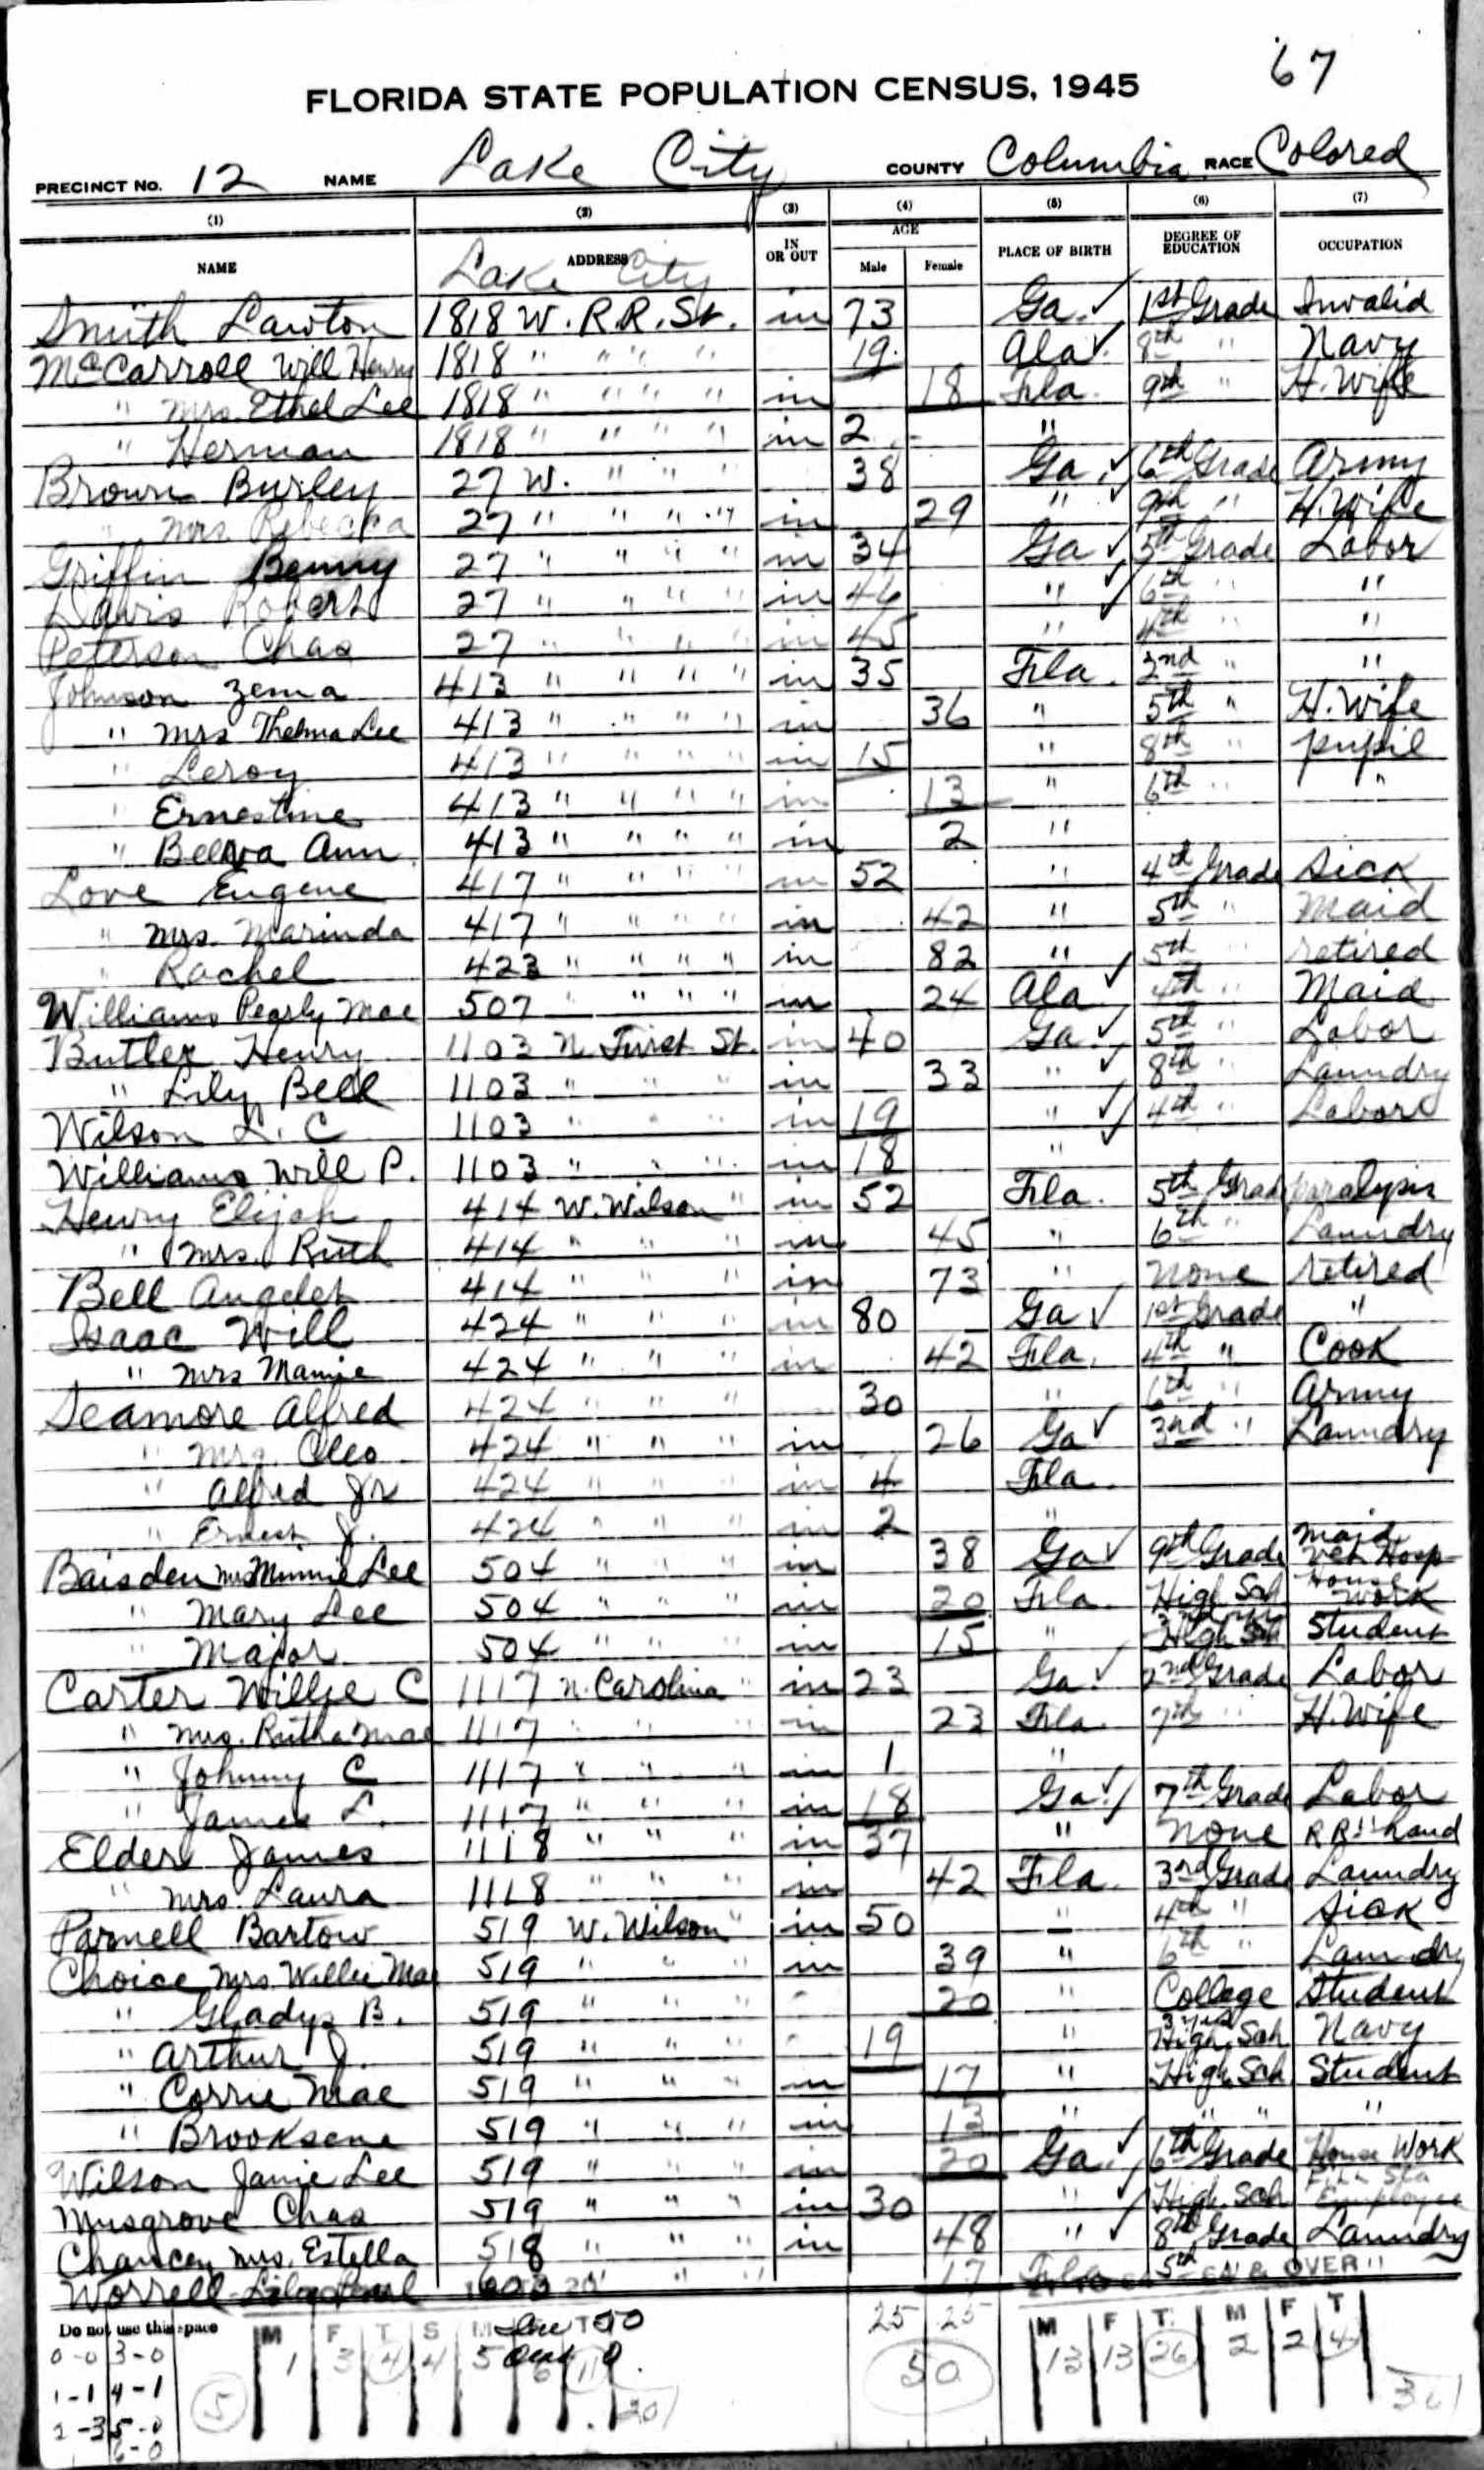 67
FLORIDA STATE POPULATION CENSUS, 1945
PRECINCT No. 12 NAME Lake City COUNTY Columbia RACE Colored
(1) (2) (3) (4) (5) (6) (7)
NAME ADDRESS IN OR OUT AGE Male Female PLACE OF BIRTH DEGREE OF EDUCATION OCCUPATION
Lake City
Smith Lawton 1818 W. R.R. St. in 73 Ga. ✓ 1st Grade Invalid
McCarroll Will Henry 1818 " " " " 19 Ala ✓ 8th " Navy
" Mrs. Ethel Lee 1818 " " " " in 18 Fla. 9th " H. Wife
" Herman 1818 " " " " in 2 "
Brown Burley 27 W. " " " 38 Ga. ✓ 6th Grade Army
" Mrs Rebecca 27 " " " " in 29 " ✓ 9th " H. Wife
Griffin Benny 27 " " " " in 34 Ga ✓ 5th Grade Labor
Davis Robert 27 " " " " in 46 " ✓ 6th " "
Peterson Chas 27 " " " " in 45 " ✓ 4th " "
Johnson Zema 413 " " " " in 35 Fla. 2nd " "
" Mrs Thelma Lee 413 " " " " in 36 " 5th " H. Wife
" Leroy 413 " " " " in 15 " 8th " pupil
" Ernestine 413 " " " " in 13 " 6th " "
" Belva Ann 413 " " " " in 2 "
Love Eugene 417 " " " " in 52 " 4th Grade Sick
" Mrs. Marinda 417 " " " " in 42 " 5th " Maid
" Rachel 423 " " " " in 82 " 5th " retired
Williams Pearly Mae 507 " " " " in 24 Ala ✓ 4th " Maid
Butler Henry 1103 N. First St. in 40 Ga. ✓ 5th " Labor
" Lily Bell 1103 " " " in 33 " ✓ 8th " Laundry
Wilson L. C 1103 " " " in 19 " ✓ 4th " Labor
Williams Will P. 1103 " " " in 18 " ✓
Henry Elijah 414 W. Wilson " in 52 Fla. 5th Grad paralysis
" Mrs. Ruth 414 " " " in 45 " 6th " Laundry
Bell 414 " " " in 73 " None retired
Isaac Will 424 " " " in 80 Ga ✓ 1st Grade "
" Mrs Mamie 424 " " " in 42 Fla. 4th " Cook
Seamore Alfred 424 " " " 30 " 6th " Army
" Mrs. Cleo 424 " " " in 26 Ga ✓ 3nd " Laundry
" Alfred Jr 424 " " " in 4 Fla.
" Ernest J. 424 " " " in 2 "
Baisden Mrs Minnie Lee 504 " " " in 38 Ga ✓ 9th Grade Maid Vet Hosp
" Mary Lee 504 " " " in 20 Fla. High Sch House Work
" Major 504 " " " in 15 " High Sch Student
Carter Willie C 1117 N. Carolina " in 23 Ga ✓ 2nd Grade Labor
" Mrs. Rutha Mae 1117 " " " in 23 Fla. 7th " H. Wife
" Johnny C 1117 " " " in 1 "
" James L. 1117 " " " in 18 Ga. ✓ 7th Grade Labor
Elder James 1118 " " " in 37 " None R R hand
" Mrs. Laura 1118 " " " in 42 Fla. 3rd Grade Laundry
Parnell Bartow 519 W. Wilson " in 50 " 4th " Sick
Choice Mrs. Willie Mae 519 " " " in 39 " 6th " Laundry
" Gladys B. 519 " " " 20 " College Student
" Arthur J. 519 " " " 19 " 3 yrs High Sch Navy
" Corrie Mae 519 " " " in 17 " High Sch Student
" Brooksene 519 " " " in 13 " " " "
Wilson Janie Lee 519 " " " in 20 Ga. ✓ 6th Grade House Work
Musgrove Chas 519 " " " in 30 " ✓ High Sch Fill Sta Employee
Chancey Mrs. Estella 518 " " " in 48 " ✓ 8th Grade Laundry
Worrell 17 Fla 5th "
& OVER
Do not use this space M F T S M T 25 25 M F T M F T
0-0 3-0 1 3 4 4 5 6 11 50 13 13 26 2 2 4
1-1 4-1 5 20 30
2-3 5-0
6-0